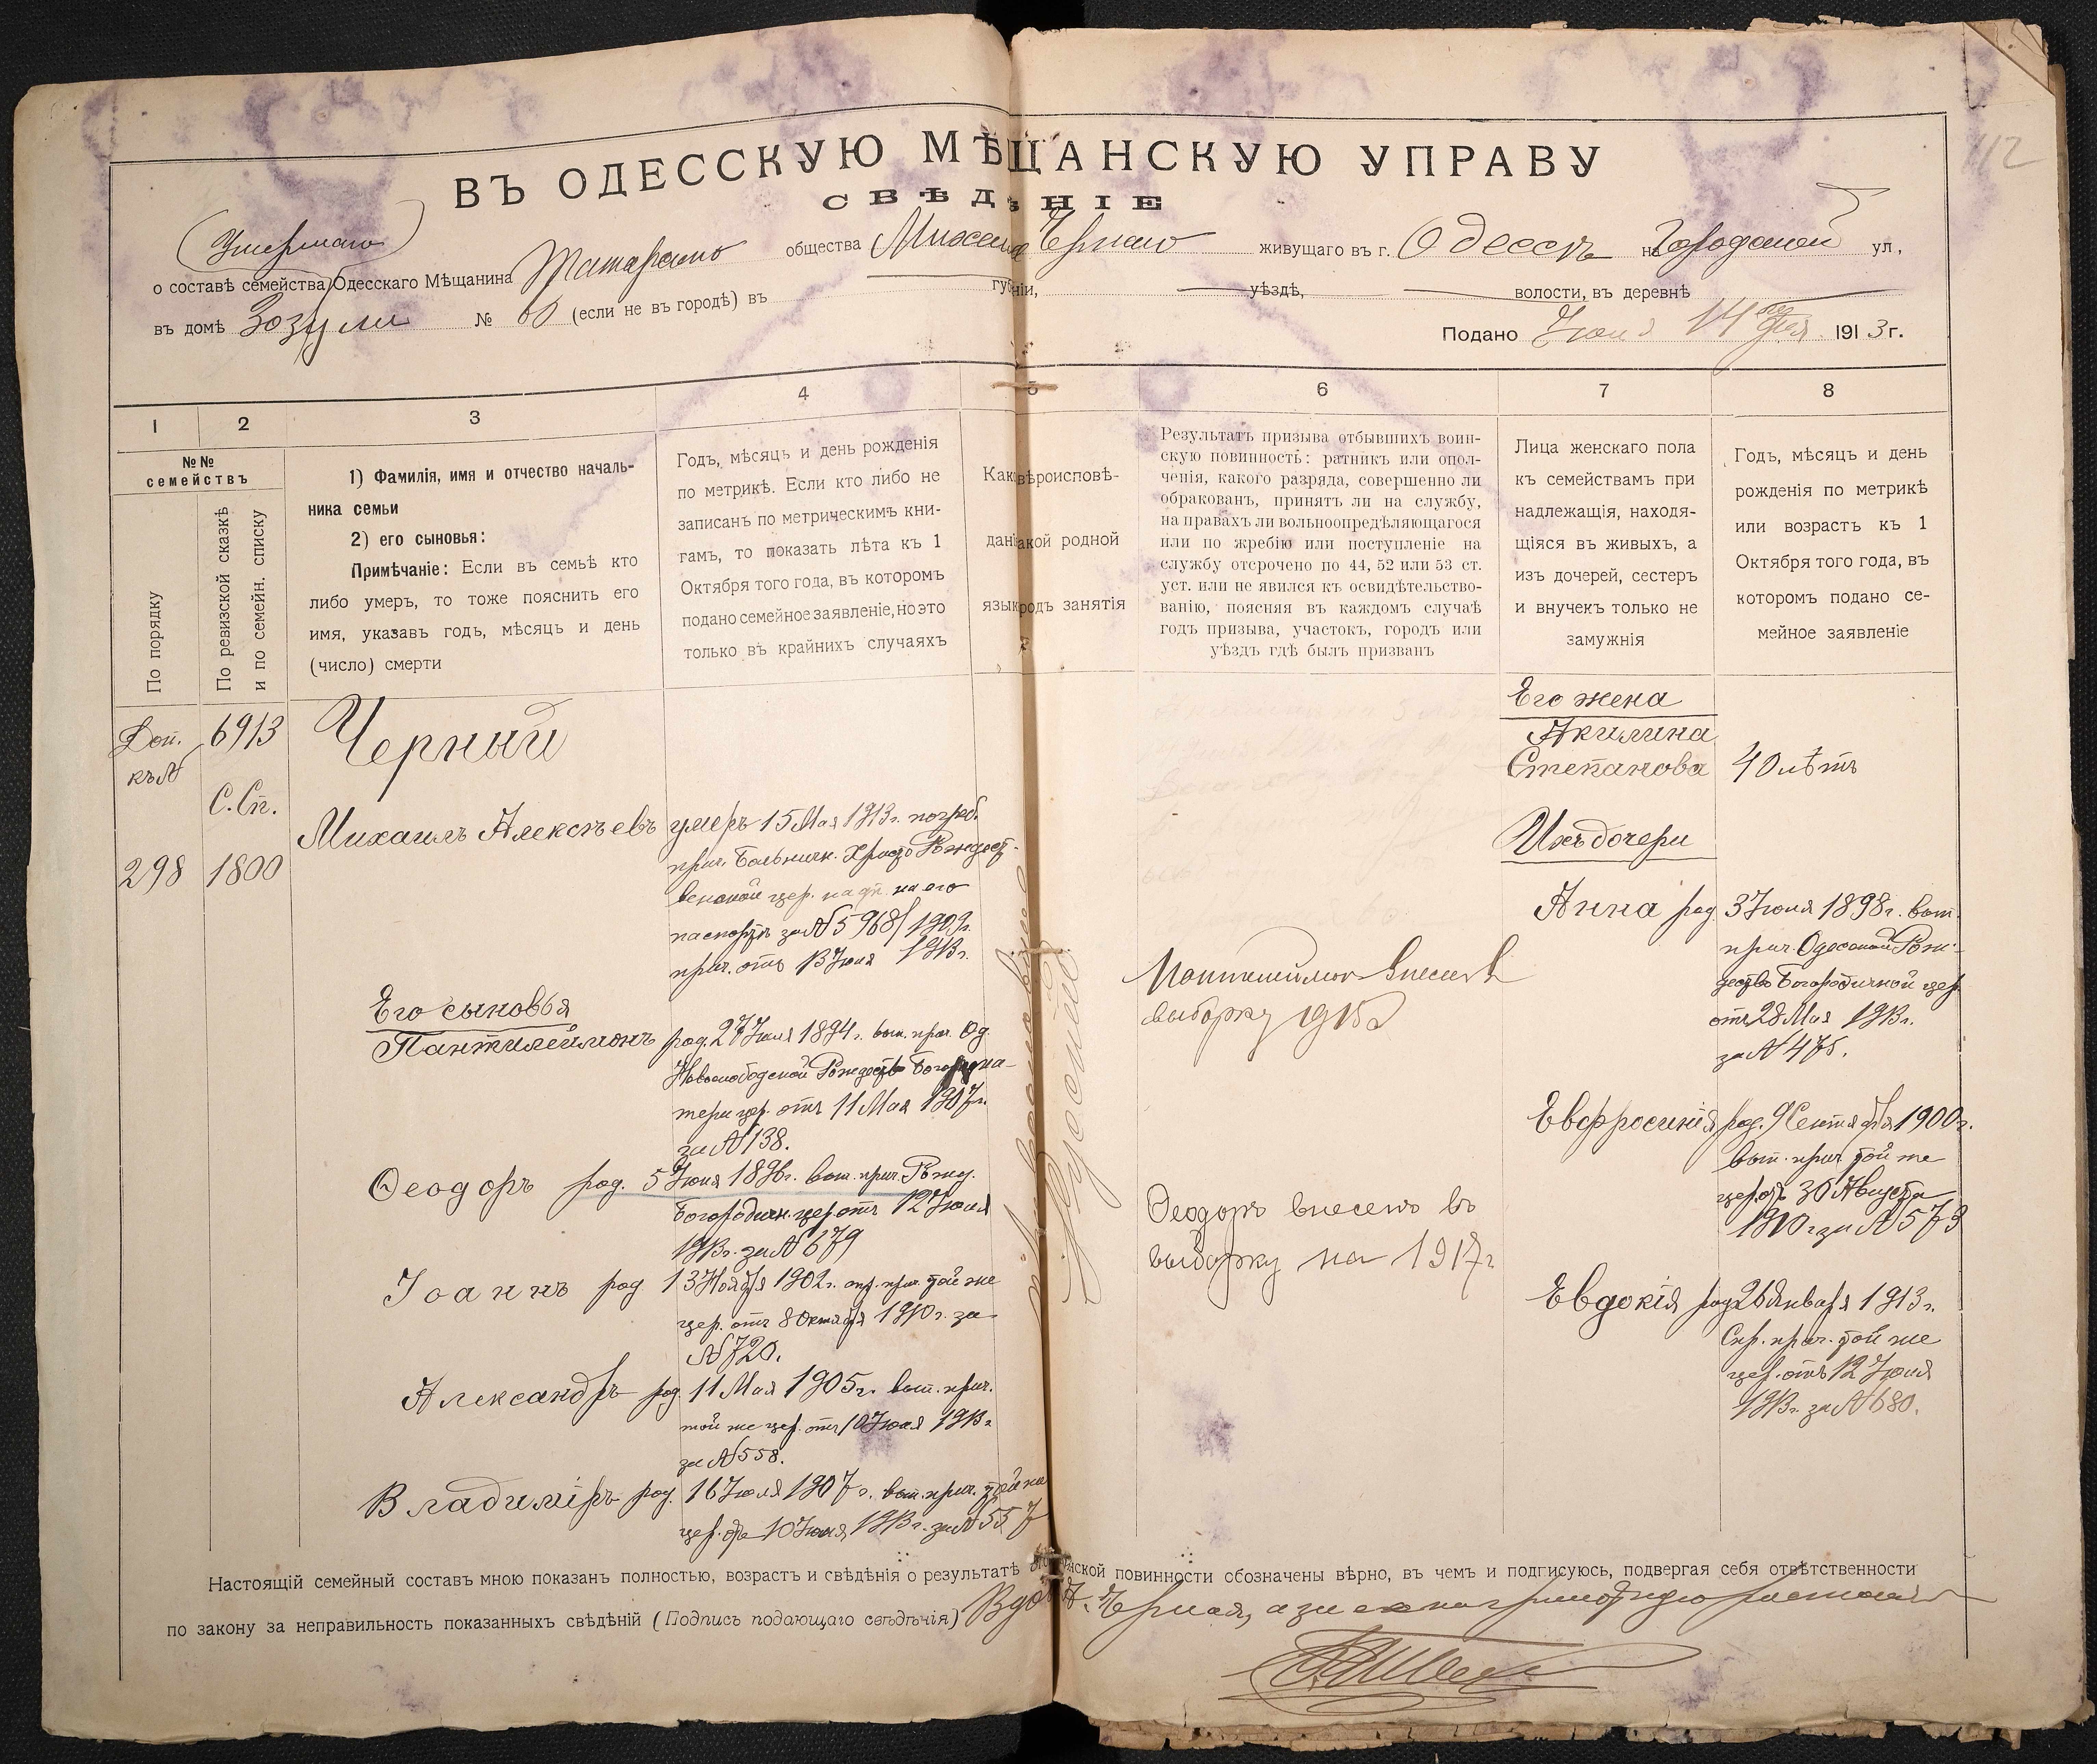 112
ВЪ ОДЕССКУЮ МѢЩАНСКУЮ УПРАВУ
СВѢДѢНІЕ
(Умершаго)
о составѣ семейства Одесскаго Мѣщанина общества Михаила Чернаго живущаго въ г. Одессѣ на Городской ул,
въ домѣ Зозули № (если не въ городѣ) въ губерніи, уѣздѣ, волости, въ деревнѣ
Подано Іюня 14 дня 1913 г.
1 2 3 4 5 6 7 8
№№
семействъ
По порядку
По ревизской сказкѣ
и по семейн. списку
1) Фамилія, имя и отчество началь-
ника семьи
2) его сыновья:
Примѣчаніе: Если въ семьѣ кто
либо умеръ, то тоже пояснить его
имя, указавъ годъ, мѣсяцъ и день
(число) смерти
Годъ, мѣсяцъ и день рожденія
по метрикѣ. Если кто либо не
записанъ по метрическимъ кни-
гамъ, то показать лѣта къ 1
Октября того года, въ которомъ
подано семейное заявленіе, но это
только въ крайнихъ случаяхъ
Как вѣроисповѣ-
дані акой родной
язык родъ занятія
Результатъ призыва отбывшихъ воин-
скую повинность: ратникъ или опол-
ченія, какого разряда, совершенно ли
обракованъ, принятъ ли на службу,
на правахъ ли вольноопредѣляющагося
или по жребію или поступленіе на
службу отсрочено по 44, 52 или 53 ст.
уст. или не явился къ освидѣтельство-
ванію, поясняя въ каждомъ случаѣ
годъ призыва, участокъ, городъ или
уѣздъ гдѣ былъ призванъ
Лица женскаго пола
къ семействамъ при
надлежащія, находя-
щіяся въ живыхъ, а
изъ дочерей, сестеръ
и внучекъ только не
замужнія
Годъ, мѣсяцъ и день
рожденія по метрикѣ
или возрастъ къ 1
Октября того года, въ
которомъ подано се-
мейное заявленіе
Доп.
къ №
298
6913
С. Сп.
1800
Черный
Михаилъ Алексѣевъ умеръ 15 Мая 1913 г. погреб.
прич. Больничн. Христо Рождест-
венской цер. надп. на его
паспортѣ за № 5968/1909 г.
прич. отъ 13 Іюня 1913 г.
Его сыновья
Пантилеймонъ род. 27 Іюля 1894 г. вып. прич. Од.
Новослободской Рождество Богома-
тери цер. отъ 11 Мая 1907 г.
за № 138.
Ѳеодоръ род. 5 Іюня 1896 г. вып. прич. Рожд.
Богородичн. цер. отъ 12 Іюня
1913 г. за № 679
Іоаннъ род. 13 Ноября 1902 г. прич. той же
цер. отъ 8 Октября 1910 г. за
№ 720.
Александръ род. 11 Мая 1905 г. вып. прич.
той же цер. отъ 10 Іюня 1913 г.
за № 558.
Владиміръ род. 16 Іюля 1907 г. вып. прич. той же
цер. отъ 10 Іюня 1913 г. за № 557
православное
Русскій
внесенъ въ
выборку 1915
Ѳеодоръ внесенъ въ
выборку на 1917 г
Его жена
Акилина
Степанова 40 лѣтъ
Ихъ дочери
Анна род. 3 Іюня 1898 г. вып.
прич. Одесской Рож-
дество Богородичной цер.
отъ 28 Мая 1913 г.
за № 475.
Евфросинія род. 9 Сентября 1900 г.
вып. прич. той же
цер. отъ 30 Августа
1910 г. за № 573
Евдокія род. 26 Января 1913 г.
прич. той же
цер. отъ 12 Іюня
1913 г. за № 680.
Настоящій семейный составъ мною показанъ полностью, возрастъ и свѣдѣнія о результатѣ воинской повинности обозначены вѣрно, въ чемъ и подписуюсь, подвергая себя отвѣтственности
по закону за неправильность показанныхъ свѣдѣній (Подпись подающаго свѣдѣнія) Вдова А. Черная, а за неграмотную росписался